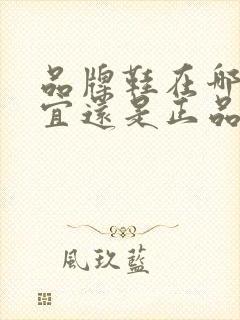 品牌鞋在哪
宜還是正品
風玖藍